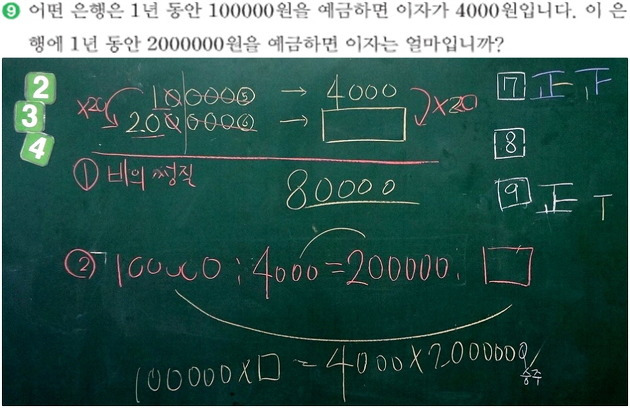 9 어떤 은행은 1년 동안 100000원을 예금하면 이자가 4000원입니다. 이 은
행에 1년 동안 2000000원을 예금하면 이자는 얼마입니까?
2
3
4
×20
100000⑤ → 4000
2.000000⑥ → □
×20
① 비의 성질
80000
17 正 下
8
9 正 丅
② 100000 : 4000 = 200000 : □
100000×□ = 4000×2000000